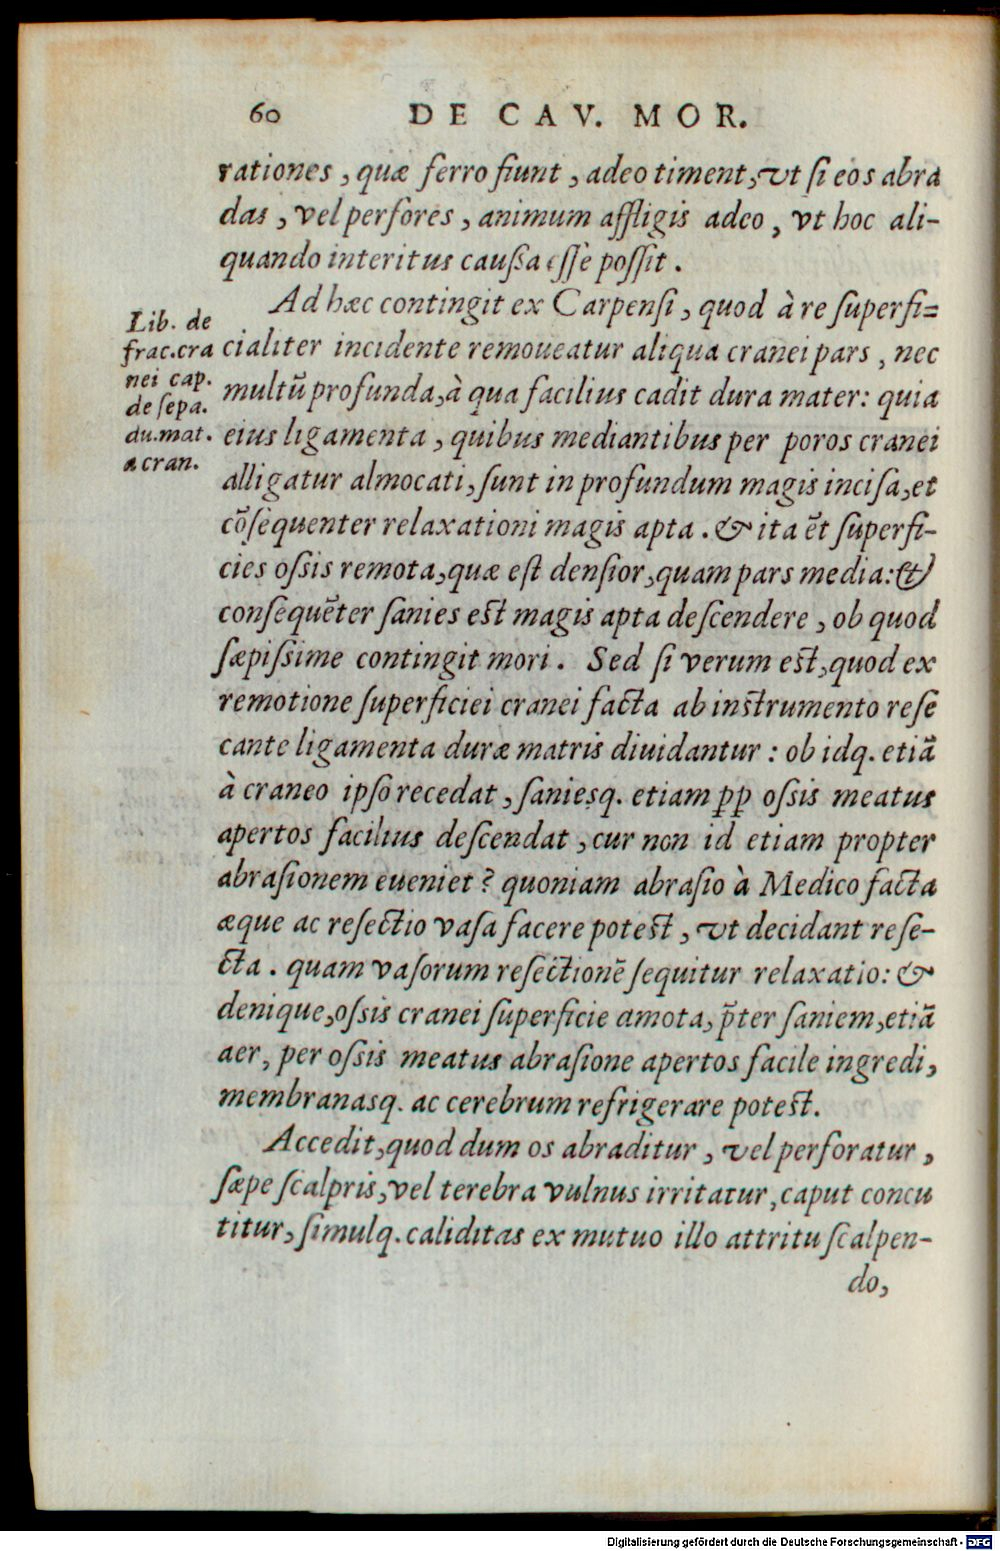 60 DE CAV. MOR.
rationes, quæ ferro fiunt, adeo timent, vt si eos abra
das, vel perfores, animum affligis adeo, vt hoc ali-
quando interitus caußa esse possit.
Ad hæc contingit ex Carpensi, quod à re superfi=
cialiter incidente remoueatur aliqua cranei pars, nec
multũ profunda, à qua facilius cadit dura mater: quia
eius ligamenta, quibus mediantibus per poros cranei
alligatur almocati, sunt in profundum magis incisa, et
cõsequenter relaxationi magis apta. & ita ẽt superfi-
cies ossis remota, quæ est densior, quam pars media: &
consequẽter sanies est magis apta descendere, ob quod
sæpissime contingit mori. Sed si verum est, quod ex
remotione superficiei cranei facta ab instrumento rese
cante ligamenta duræ matris diuidantur: ob idq. etiã
à craneo ipso recedat, saniesq. etiam ꝓꝓ ossis meatus
apertos facilius descendat, cur non id etiam propter
abrasionem eueniet? quoniam abrasio à Medico facta
æque ac resectio vasa facere potest, vt decidant rese-
cta. quam vasorum resectionẽ sequitur relaxatio: &
denique, ossis cranei superficie amota, p̃ter saniem, etiã
aer, per ossis meatus abrasione apertos facile ingredi,
membranasq. ac cerebrum refrigerare potest.
Accedit, quod dum os abraditur, vel perforatur,
sæpe scalpris, vel terebra vulnus irritatur, caput concu
titur, simulq. caliditas ex mutuo illo attritu scalpen-
do,
Lib. de
frac.cra
nei cap.
de sepa.
du.mat.
a cran.
Digitalisierung gefördert durch die Deutsche Forschungsgemeinschaft - DFG